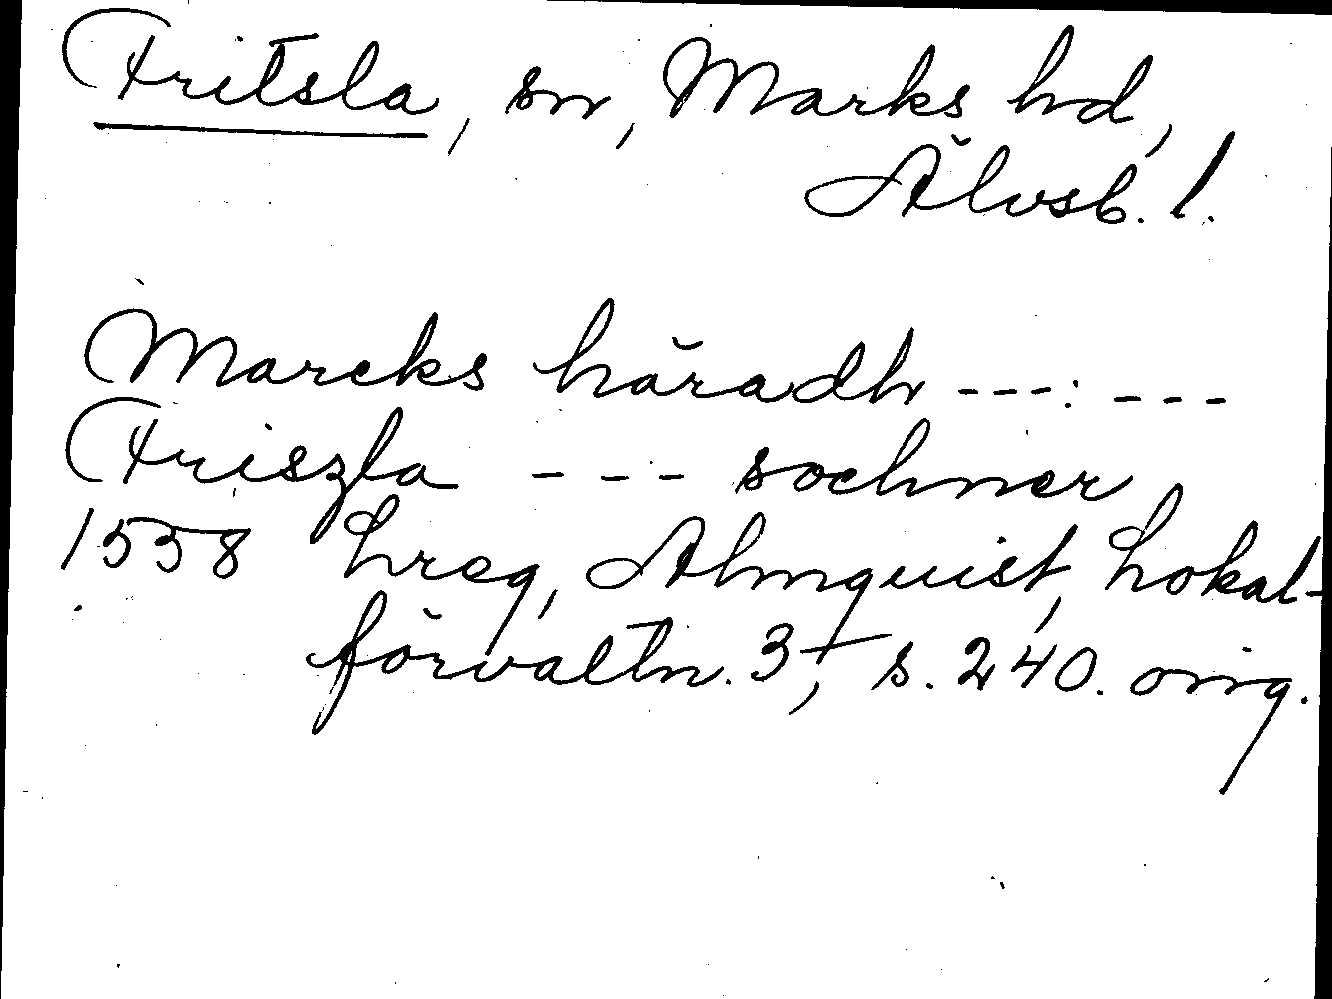 Fritsla, sn, Marks hd,
Älvsb. l.
Marcks häradh ---:---
Friszla --- sochner
1558 Lreg, Almquist, Lokal-
förvaltn. 3, s. 240. orig.